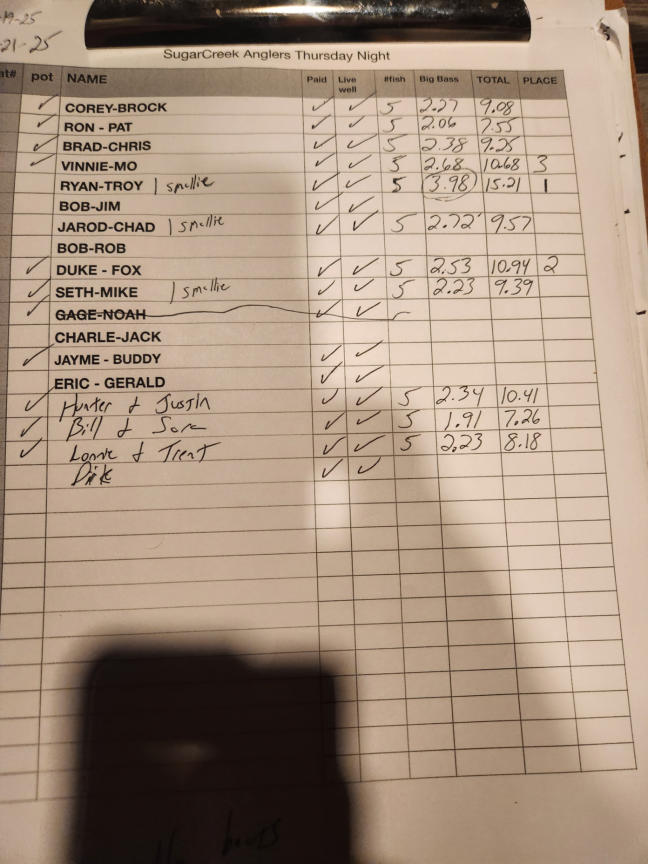 -19-25
-21-25
SugarCreek Anglers Thursday Night
at# pot NAME Paid Live well #fish Big Bass TOTAL PLACE
✓ COREY-BROCK ✓ ✓ 5 2.27 9.08
✓ RON - PAT ✓ ✓ 5 2.06 7.55
✓ BRAD-CHRIS ✓ ✓ 5 2.38 9.25
✓ VINNIE-MO ✓ ✓ 5 2.68 10.68 3
RYAN-TROY 1 smallie ✓ ✓ 5 3.98 15.21 1
BOB-JIM ✓ ✓
JAROD-CHAD 1 smallie ✓ ✓ 5 2.72 9.57
BOB-ROB
✓ DUKE - FOX ✓ ✓ 5 2.53 10.94 2
✓ SETH-MIKE 1 smallie ✓ ✓ 5 2.23 9.39
✓ GAGE-NOAH ✓ ✓
CHARLE-JACK
✓ JAYME - BUDDY ✓ ✓
ERIC - GERALD ✓ ✓
✓ Hunter & Justin ✓ ✓ 5 2.34 10.41
✓ Bill & ✓ ✓ 5 1.91 7.26
✓ Lonnie & Trent ✓ ✓ 5 2.23 8.18
✓ ✓